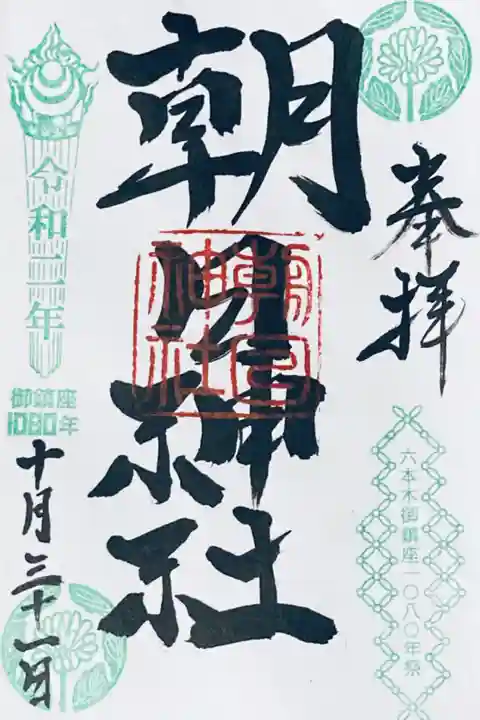 奉拝
六本木御鎮座一〇八〇年祭
朝日神社
朝日
神社
令和二年
御鎮座
1080年
十月三十一日